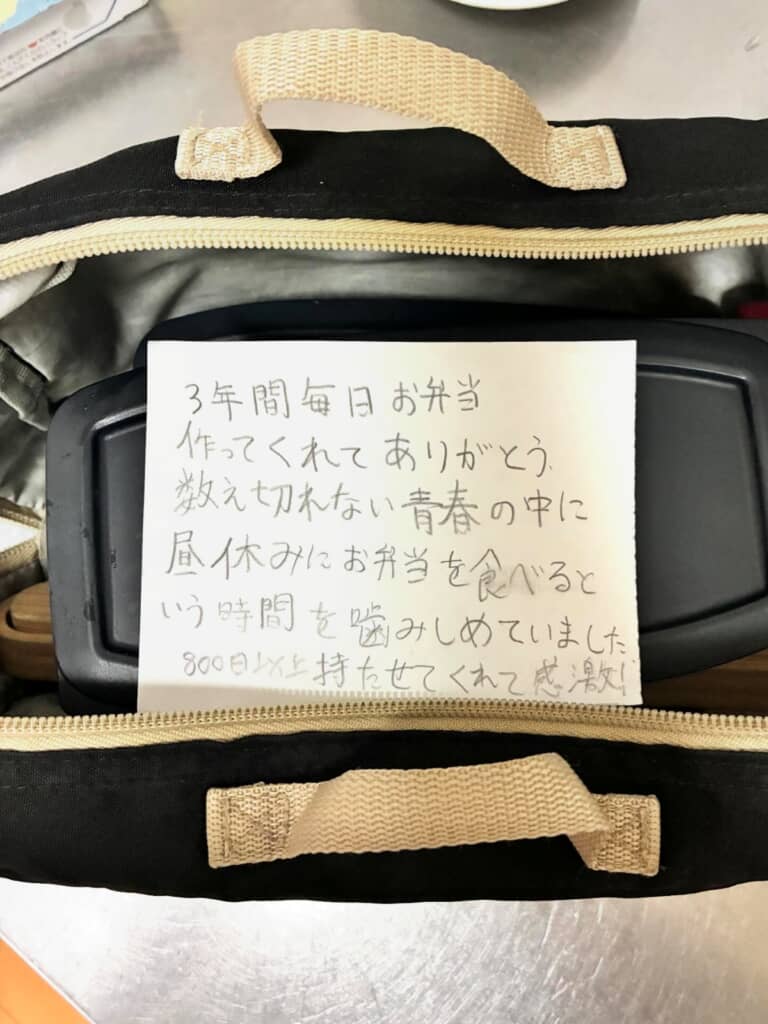 3年間毎日お弁当
作ってくれてありがとう、
数え切れない青春の中に
昼休みにお弁当を食べると
いう時間を噛みしめていました
800日以上持たせてくれて感激!